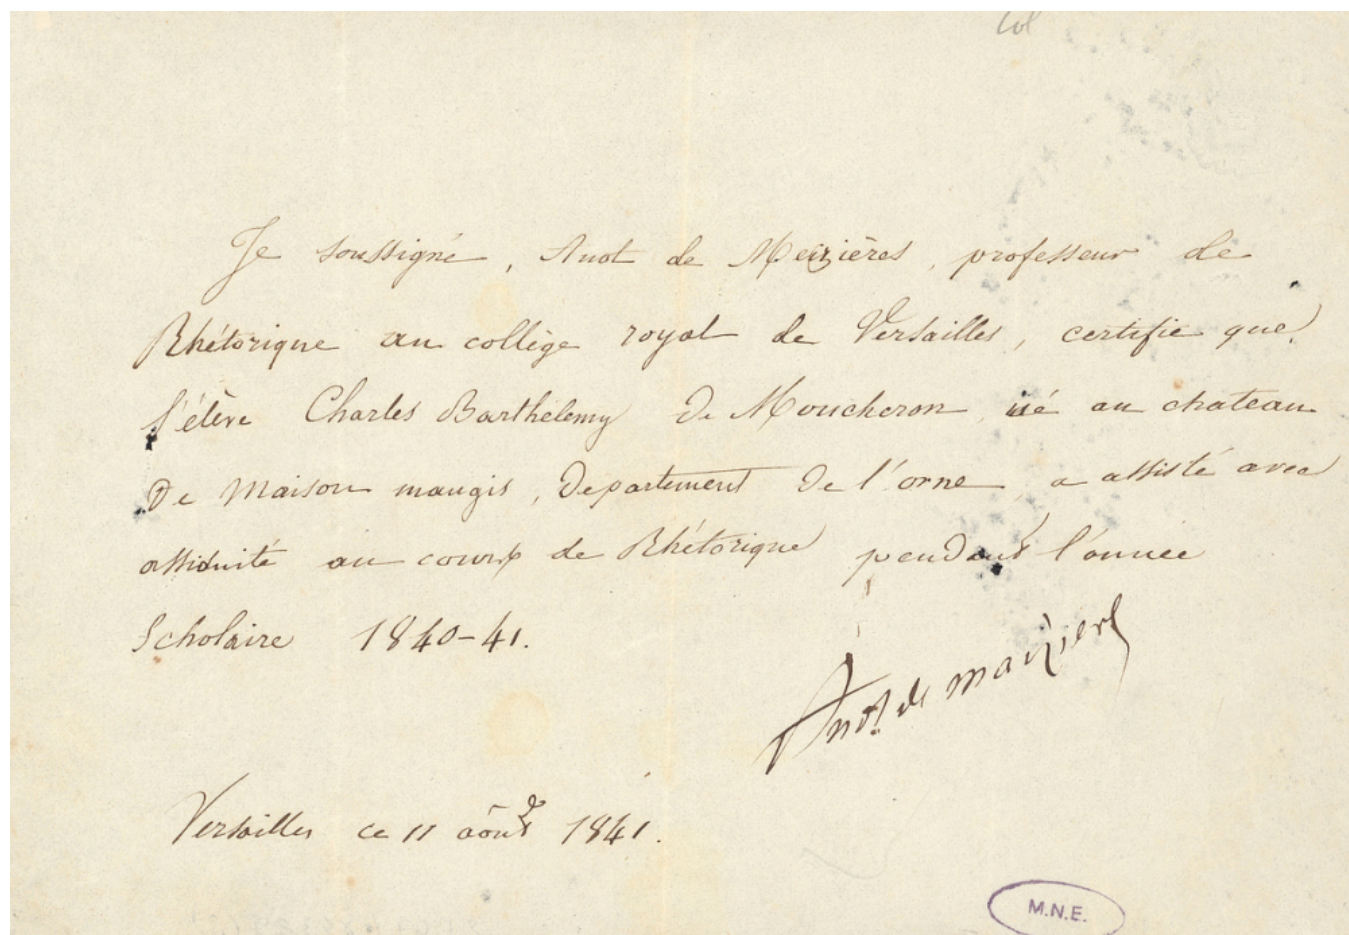 Col
Je soussigné, Anot de Meizières, professeur de
Rhétorique au collège royal de Versailles, certifie que
l'élève Charles Barthélemy De Moucheron né au chateau
De Maison maugis, Departement De l'orne, a assisté avec
assiduité au cours de Rhétorique pendant l'année
Scholaire 1840-41.
Anot de maizières
Versailles ce 11 août 1841.
M.N.E.